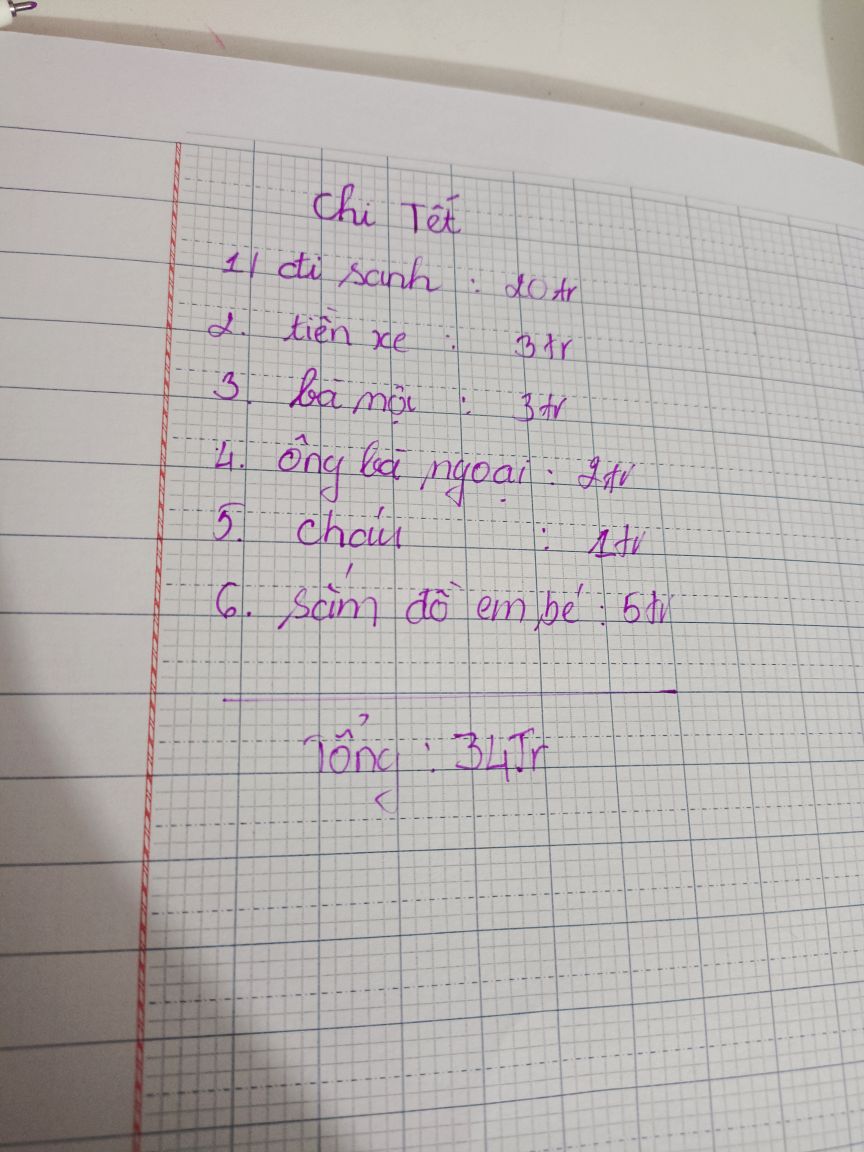 Chi Tết
1/ đi sanh : 20 tr
2. tiền xe : 3 tr
3. bà mội : 3 tr
4. ông bà ngoại : 2 tr
5. cháu : 1 tr
6. sắm đồ em bé : 5 tr
Tổng : 34 Tr